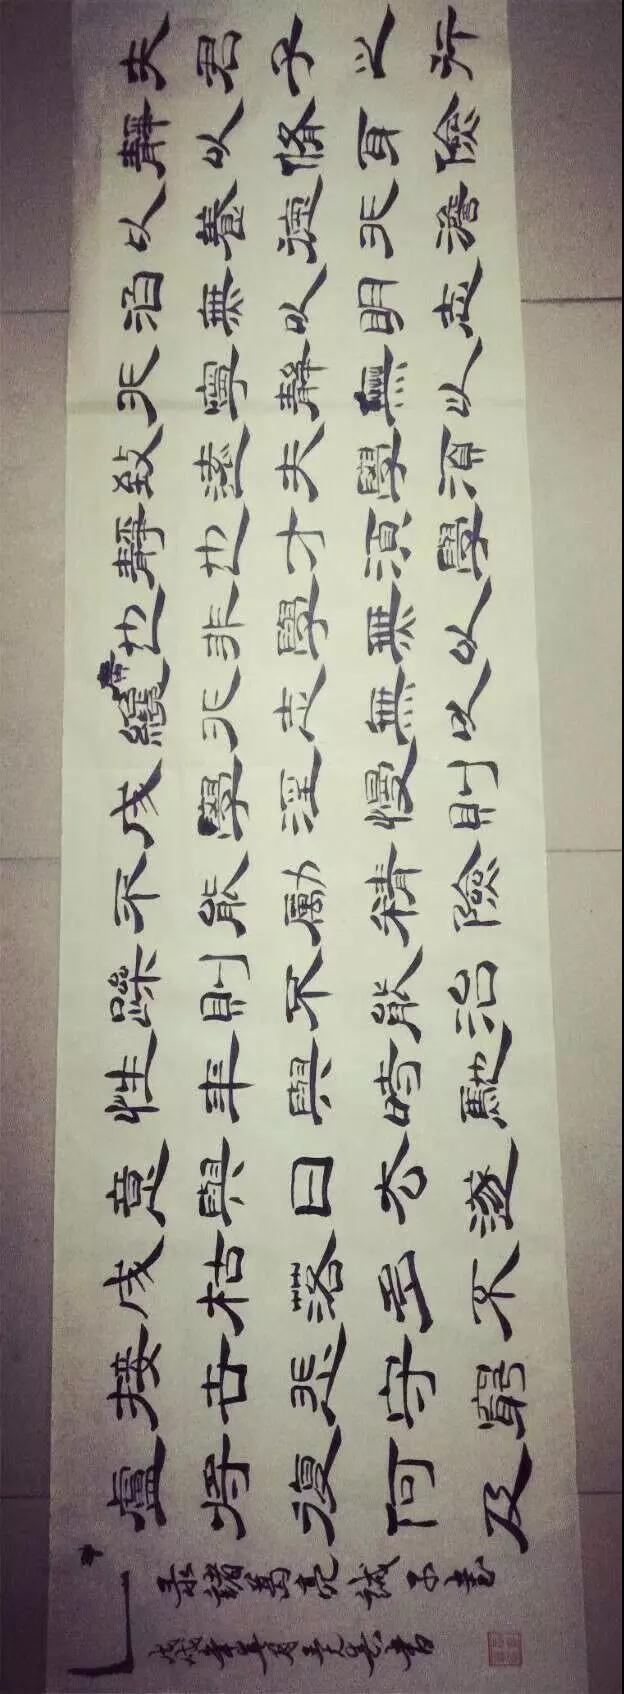 夫君子之行
靜以脩身險
以養德非澹
泊無以明志
非寧靜無以
致遠夫學須
靜也才須學
也非學無以
廣纔非志無以
成學淫慢則
不能勵精險
躁則不能治
性年與時馳
意與日去遂
成枯落多不
接世悲守窮
廬將復何及
录諸葛亮誡子書